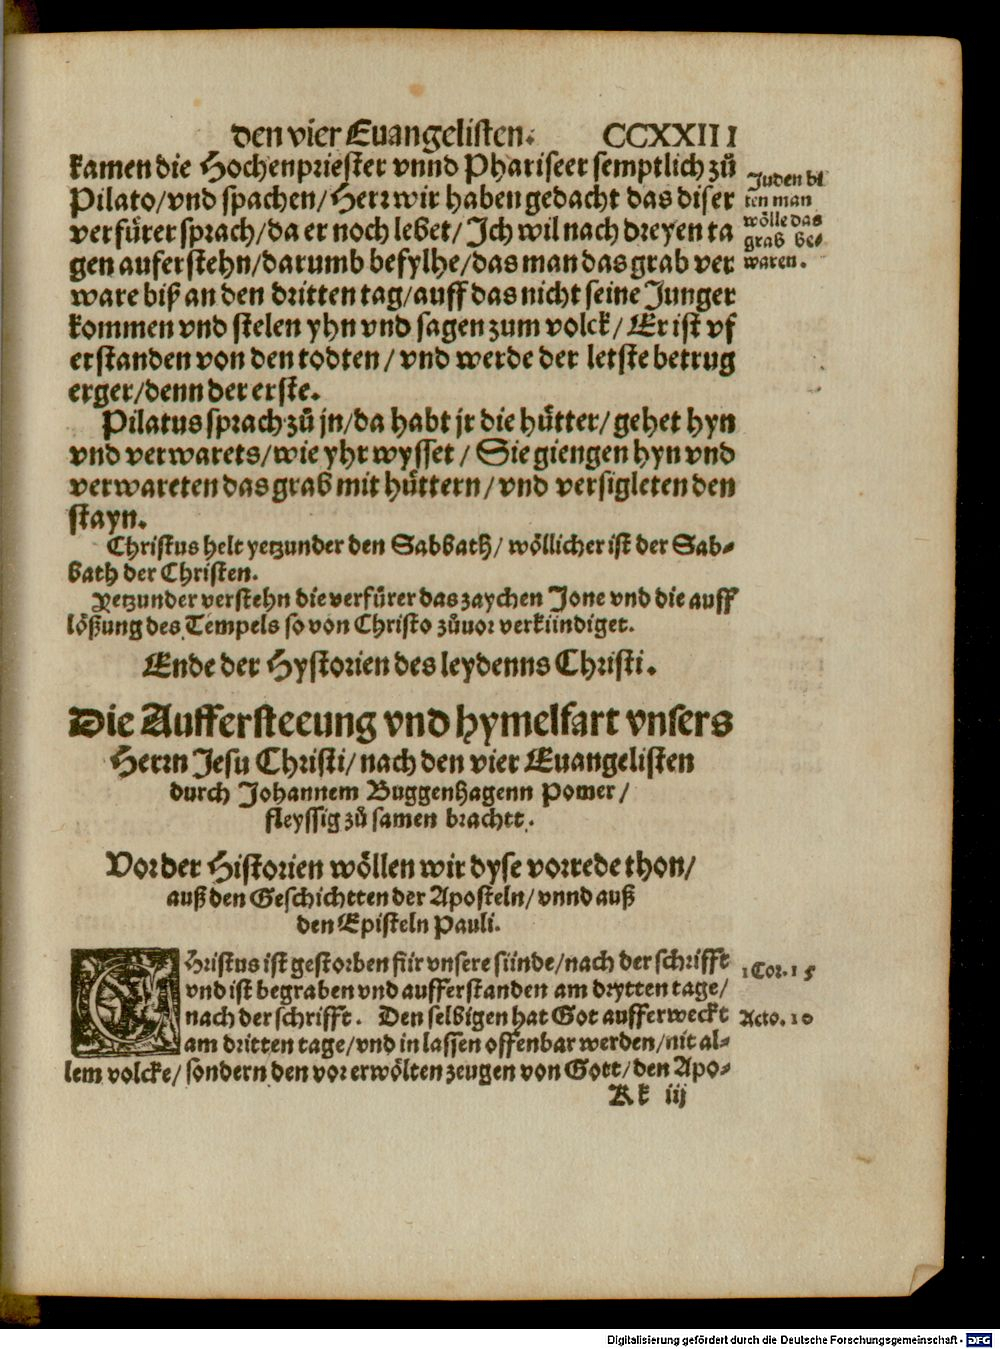 den vier Euangelisten. CCXXIII
kamen die Hochenpriester vnnd Phariseer semptlich zů
Pilato/vnd spachen/Herr wir haben gedacht das diser
verfürer sprach/da er noch lebet/Ich wil nach dreyen ta
gen auferstehn/darumb befylhe/das man das grab ver
ware biß an den dritten tag/auff das nicht seine Junger
kommen vnd stelen yhn vnd sagen zum volck/Er ist vf
erstanden von den todten/vnd werde der letste betrug
erger/denn der erste.
Juden bi
ten man
wölle das
grab be⸗
waren.
Pilatus sprach zů jn/da habt jr die hůtter/gehet hyn
vnd verwarets/wie yhr wysset/Sie giengen hyn vnd
verwareten das grab mit hůttern/vnd versigleten den
stayn.
Christus helt yetzunder den Sabbath/wöllicher ist der Sab⸗
bath der Christen.
Yetzunder verstehn die verfürer das zaychen Jone vnd die auff
lößung des Tempels so von Christo zůuor verkündiget.
Ende der Hystorien des leydenns Christi.
Die Aufferstecung vnd hymelfart vnsers
Herrn Jesu Christi/nach den vier Euangelisten
durch Johannem Buggenhagenn Pomer/
fleyssig zů samen brachtt.
Vor der Historien wöllen wir dyse vorrede thon/
auß den Geschichtten der Aposteln/vnnd auß
den Episteln Pauli.
CHristus ist gestorben für vnsere sünde/nach der schrifft
vnd ist begraben vnd aufferstanden am drytten tage/
nach der schrifft. Den selbigen hat Got aufferweckt
am dritten tage/vnd in lassen offenbar werden/nit al⸗
lem volcke/sondern den vor erwölten zeugen von Gott/den Apo⸗
1 Cor. 15
Acto. 10
Kk iij
Digitalisierung gefördert durch die Deutsche Forschungsgemeinschaft - DFG